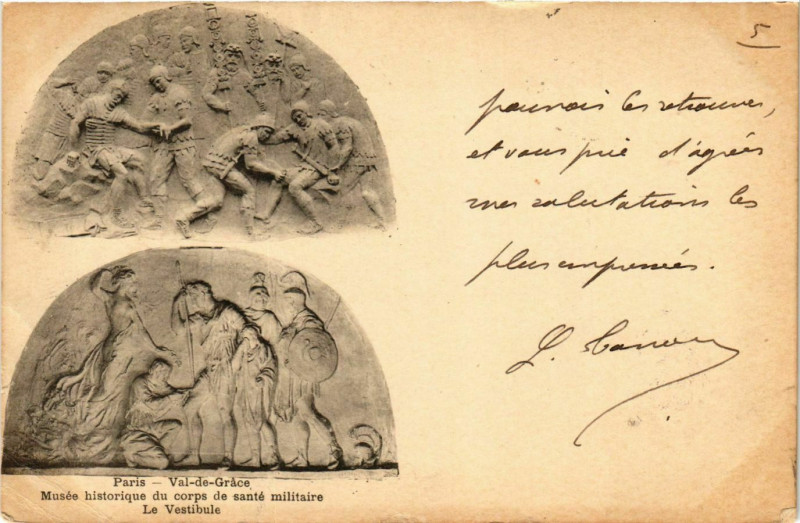 5
pouvais les retrouver,
et vous prie d'agréer
mes salutations les
plus empressées.
L.
Paris — Val-de-Grâce
Musée historique du corps de santé militaire
Le Vestibule